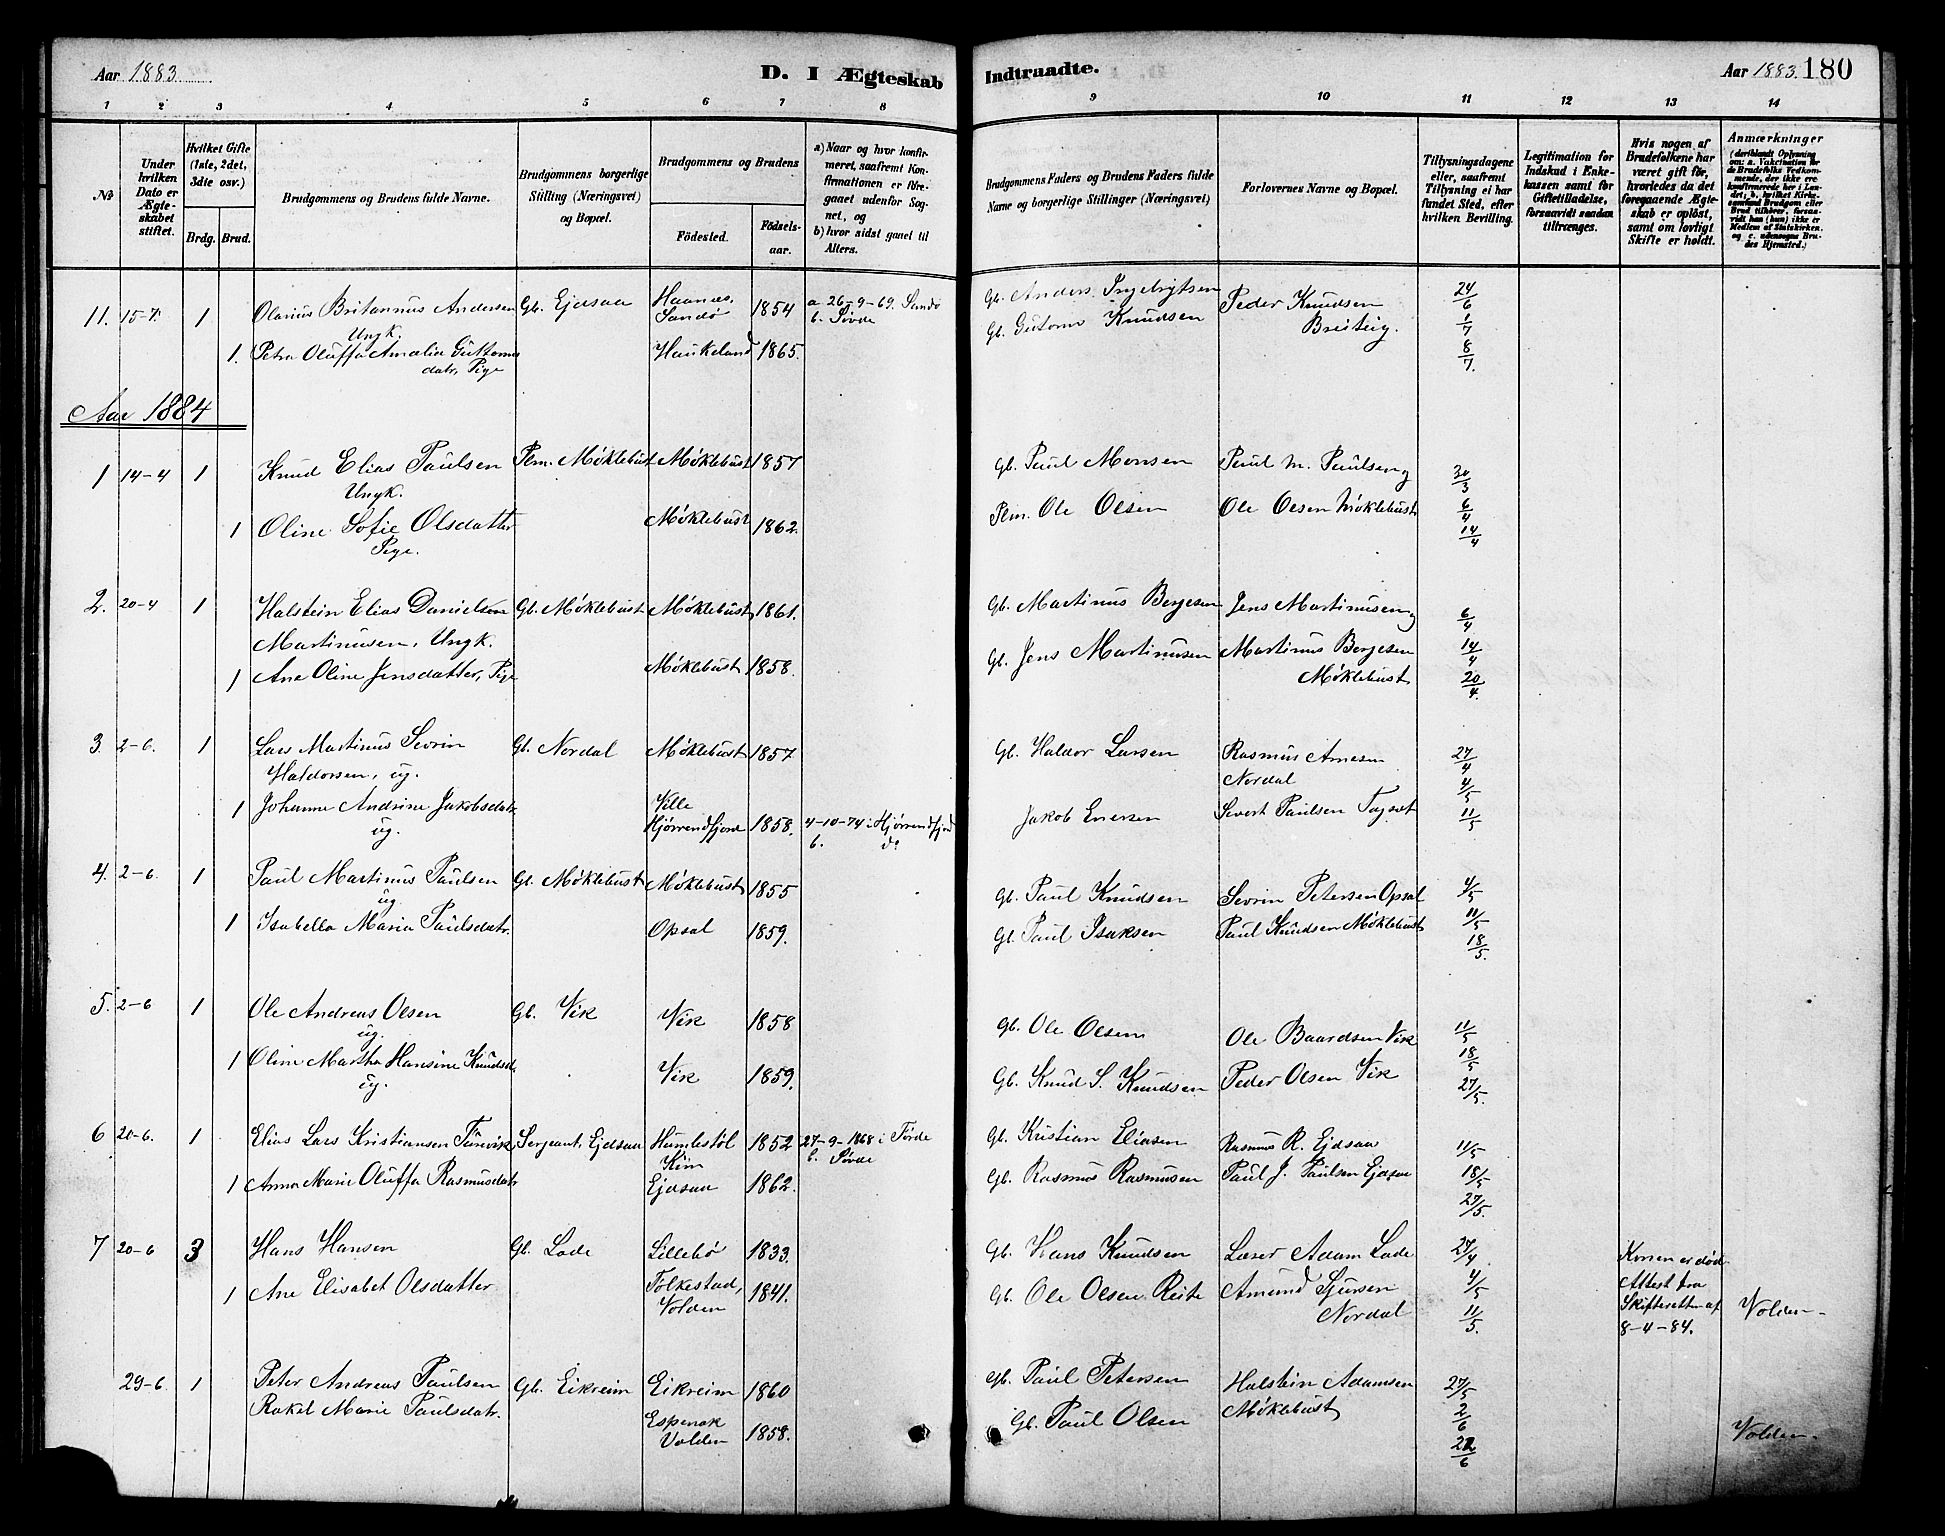 Aar 1883.
D. I Ægteskab
Indtraadte.
Aar 1883. 180
1 2 3 4 5 6 7 8 9 10 11 12 13 14
No
Under hvilken Dato er Ægteskabet stiftet.
Hvilket Gifte (1ste, 2det, 3die osv.)
Brdg. Brud.
Brudgommens og Brudens fulde Navne.
Brudgommens borgerlige Stilling (Næringsvei) og Bopæl.
Brudgommens og Brudens
Fødested.
Fødselsaar.
a) Naar og hvor konfirmeret, saafremt Konfirmationen er foregaaet udenfor Sognet, og
b) hvor sidst gaaet til Alters.
Brudgommens Faders og Brudens Faders fulde Navne og borgerlige Stillinger (Næringsvei)
Forlovernes Navne og Bopæl.
Tillysningsdagene eller, saafremt Tillysning ei har fundet Sted, efter hvilken Bevilling.
Legitimation for Indskud i Enkekassen samt for Giftetilladelse, forsaavidt saadan tiltrænges.
Hvis nogen af Brudefolkene har været gift før, hvorledes da det foregaaende Ægteskab er opløst, samt om lovligt Skifte er holdt.
Anmærkninger
(deriblandt Oplysning om: a. Vakcination for de Brudefolks Vedkommende, der ikke ere konfirmerede her i Landet, b. hvilket Kirkesamfund Brudgom eller Brud tilhører, forsaavidt han (hun) ikke er Medlem af Statskirken, og c. udensogns Brudes Hjemsted.)
11. 15-7. 1 Olarius Britannus Andersen Gb. Ejdsaa Haanæs, 1854 a 26-9-69. Sandø Gb. Anders Ingebrigtsen Peder Knudsen 24/6
Ungk. Sandø b. Søvde Gb. Gutorm Knudsen Breiteig. 1/7
1. Petra Oluffa Amalia Guttorms Haukeland 1865. 8/7.
datr, Pige
Aar 1884
1 14-4 1 Knud Elias Paulsen Plm. Møklebust Møklebust 1857 Gb. Paul Monsen Paul M. Paulsen og 30/3
Ungk. 6/4
1 Oline Sofie Olsdatter Møklebust 1862. Plm. Ole Olsen Ole Olsen Møklebust 14/4
Pige.
2. 20-4 1 Halstein Elias Danielsen Gb. Møklebust Møklebust 1861. Gb. Martinus Bergesen Jens Martinusen og 6/4
Martinusen, Ungk. 14/4
1 Ane Oline Jensdatter, Pige Møklebust 1858. Gb. Jens Martinusen Martinus Bergesen 20/4.
Møklebust
3. 2-6. 1 Lars Martinus Sevrin Gb. Nordal Møklebust 1857 Gb. Haldor Larsen Rasmus Arnesen 27/4
Haldorsen, ug. Nordal 4/5
1 Johanne Andrine Jakobsdatr Hjørrendfjord 1858. 4-10-74 i Hjørrendfjord Jakob Sivert Paulsen 11/5
ug. b. do
4. 2-6. 1 Paul Martinus Paulsen Gb. Møklebust Møklebust 1855 Gb. Paul Knudsen Sevrin Petersen Opsal 4/5
ug. 11/5
1 Isabella Maria Paulsdatr. Opsal 1859. Gb. Paul Isaksen Paul Knudsen Møklebust 18/5.
5. 2-6 1 Ole Andreas Olsen Gb. Vik Vik 1858 Gb. Ole Olsen Ole Baardsen Vik 11/5
ug. 18/5
1 Oline Martha Hansine Knudsd. Vik 1859. Gb. Knud S. Knudsen Peder Olsen Vik 27/5.
ug.
6 20-6. 1 Elias Lars Kristiansen Sergeant. Ejdsaa Humlestøl 1852 27-9-1868 i Førde Gb. Kristian Eliasen Rasmus R. Ejdsaa 11/5
b. Søvde
1 Anna Marie Oluffa Rasmusdatr Ejdsaa 1862. Gb. Rasmus Rasmusen Paul J. Paulsen Ejdsaa 18/5
27/5.
7 20-6 3 Hans Hansen Gb. Lade Lillebø 1833. Gb. Hans Knudsen Laser Adam Lade 27/4. Konen er død
1 Ane Elisabet Olsdatter Folkestad, 1841. Gb. Ole Olsen Reite Amund Sjursen 4/5 Attest fra
Volden Nordal 11/5. Skifteretten af Volden-
8-4-84.
29-6. 1 Peter Andreas Paulsen Gb. Eikreim Eikreim 1860 Gb. Paul Petersen Halstein Adamsen 27/5
Rakel Marie Paulsdatr. Espenak 1858. Gb. Paul Olsen Møklebust 2/6
Volden 22/6 Volden-